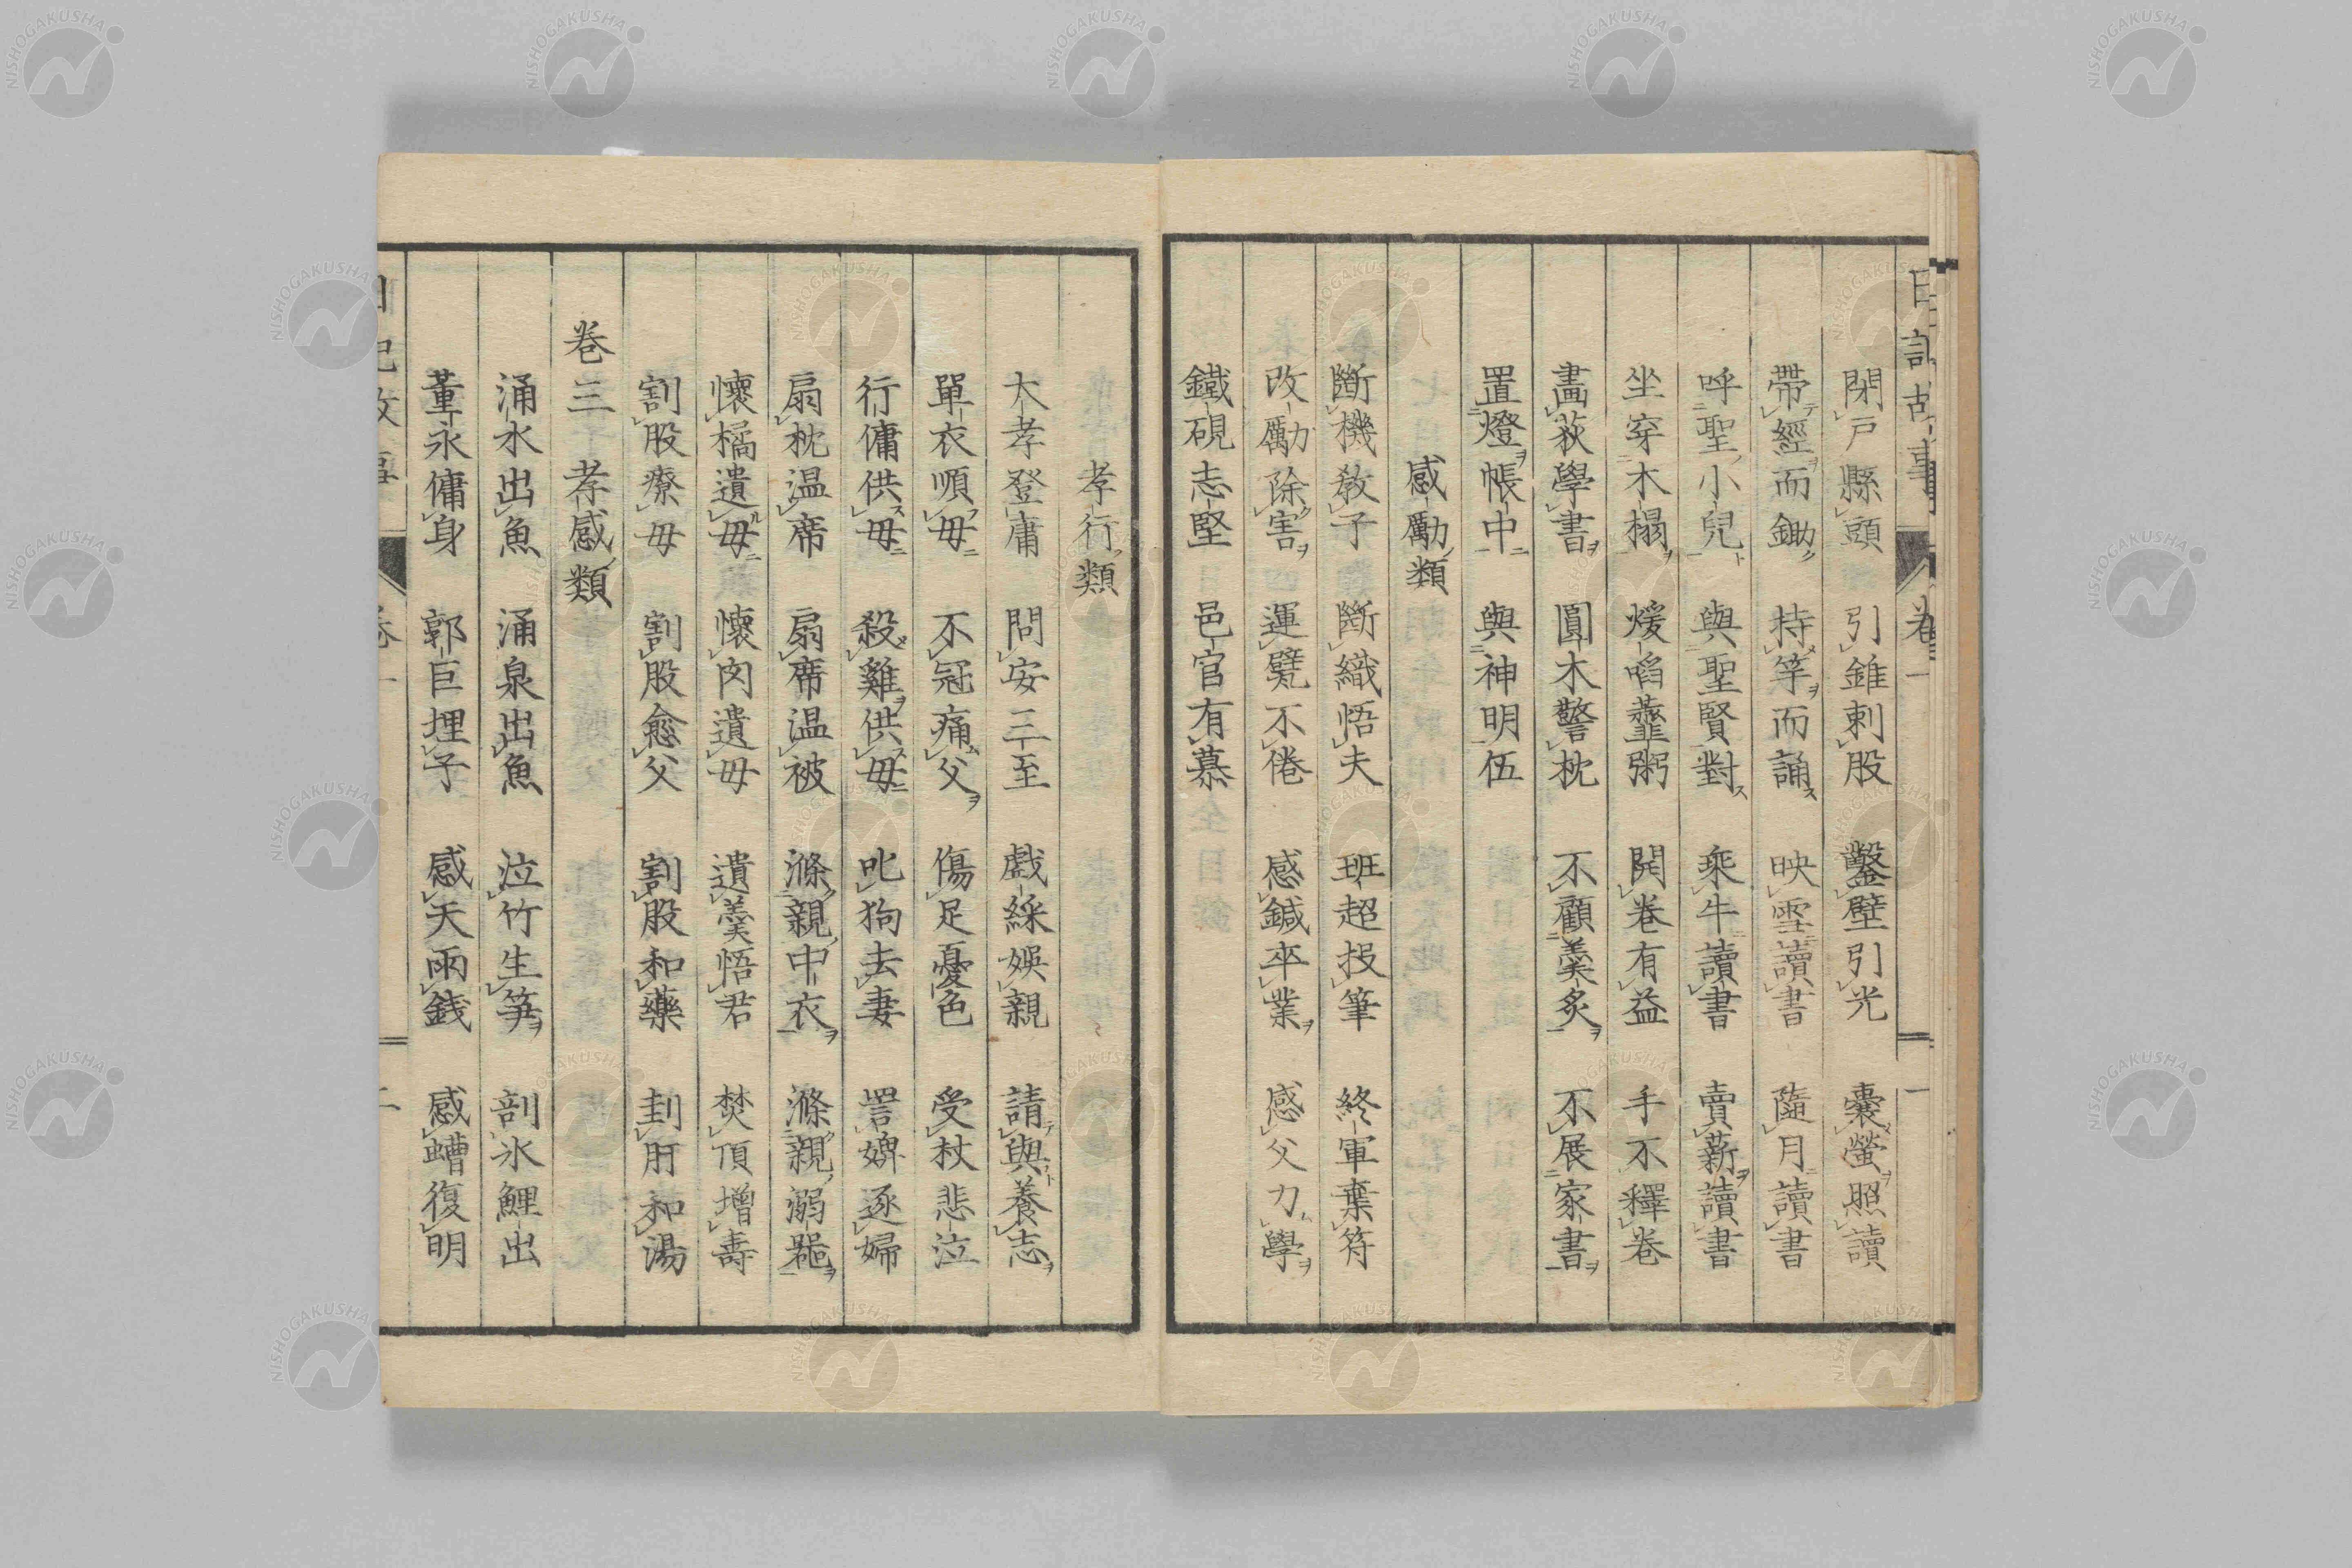 日記故事 卷一 一
閉戸縣頭 引錐刺股 鑿壁引光 囊螢照讀
帶經而鋤 持竿而誦 映雪讀書 隨月讀書
呼聖小兒 與聖賢對 乘牛讀書 賣薪讀書
坐穿木榻 煖啗虀粥 開卷有益 手不釋卷
畫荻學書 圓木警枕 不顧羹炙 不展家書
置燈帳中 與神明伍
感勵類
斷機教子 斷織悟夫 班超投筆 終軍棄符
改勵除害 運甓不倦 感鍼卒業 感父力學
鐵硯志堅 邑官有慕
孝行類
大孝登庸 問安三至 戲綵娛親 請與養志
單衣順母 不冠痛父 傷足憂色 受杖悲泣
行傭供母 殺雞供母 叱狗去妻 詈婢逐婦
扇枕温席 扇席温被 滌親中衣 滌親溺器
懷橘遺母 懷肉遺母 遺羹悟君 焚頂增壽
割股療母 割股愈父 割股和藥 刲肝和湯
卷三 孝感類
涌水出魚 涌泉出魚 泣竹生笋 剖氷鯉出
董永傭身 郭巨埋子 感天雨錢 感螬復明
日記故事 卷一 二
NISHOGAKUSHA